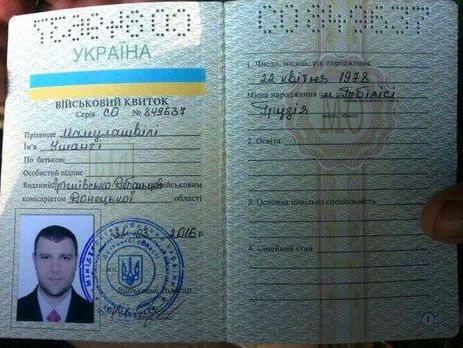 УКРАЇНА
ВІЙСЬКОВИЙ КВИТОК
Серія СО № 849637
Прізвище Мамулашвілі
Ім'я Ушангі
По батькові
Особистий підпис
Виданий військовим
комісаріатом Донецької області
31 03 2016 р.
Військовий комісар
1. Число, місяць, рік народження
22 квітня 1978
Місце народження м. Тбілісі
Грузія
2. Освіта
3. Основна цивільна спеціальність
4. Сімейний стан
1